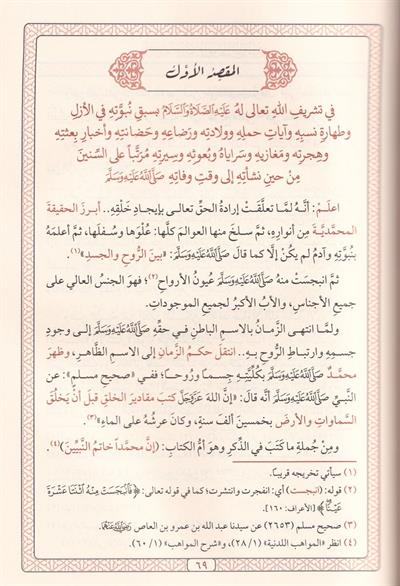 المقصد الأول
في تشريف الله تعالى له عَلَيْهِ الصَّلَاةُ وَالسَّلَامُ بسبق نبوّته في الأزل
وطهارة نسبه وآيات حمله وولادته ورضاعه وحضانته وأخبار بعثته
وهجرته ومغازيه وسراياه وبعوثه وسيرته مرتّباً على السّنين
من حين نشأته إلى وقت وفاته صَلَّى اللَّهُ عَلَيْهِ وَسَلَّمَ
اعلم: أنّه لمّا تعلّقت إرادة الحقّ تعالى بإيجاد خلقه.. أبرز الحقيقة
المحمّديّة من أنواره، ثمّ سلخ منها العوالم كلّها: عُلوها وسُفلها، ثمّ أعلمه
بنبوّته وآدم لم يكن إلّا كما قال صَلَّى اللَّهُ عَلَيْهِ وَسَلَّمَ: «بين الرّوح والجسد»(١).
ثمّ انبجست منه صَلَّى اللَّهُ عَلَيْهِ وَسَلَّمَ عُيون الأرواح(٢)؛ فهو الجنس العالي على
جميع الأجناس، والأب الأكبر لجميع الموجودات.
ولمّا انتهى الزّمان بالاسم الباطن في حقّه صَلَّى اللَّهُ عَلَيْهِ وَسَلَّمَ إلى وجود
جسمه وارتباط الرّوح به.. انتقل حكم الزّمان إلى الاسم الظّاهر، وظهر
محمّد صَلَّى اللَّهُ عَلَيْهِ وَسَلَّمَ بكلّيّته جسماً وروحاً؛ ففي «صحيح مسلم»: عن
النّبيّ صَلَّى اللَّهُ عَلَيْهِ وَسَلَّمَ أنّه قال: «إنّ الله عَزَّوَجَلَّ كتب مقادير الخلق قبل أن يخلق
السّماوات والأرض بخمسين ألف سنة، وكان عرشه على الماء»(٣)
ومن جملة ما كتب في الذّكر وهو أمّ الكتاب: (إنّ محمّداً خاتم النّبيّين)(٤).
(١) سيأتي تخريجه قريباً.
(٢) قوله: (انبجست) أي: انفجرت وانتشرت؛ كما في قوله تعالى: ﴿فَانْبَجَسَتْ مِنْهُ اثْنَتَا عَشْرَةَ
عَيْنًا﴾ [الأعراف: ١٦٠].
(٣) صحيح مسلم (٢٦٥٣) عن سيدنا عبد الله بن عمرو بن العاص رَضِيَ اللَّهُ عَنْهُمَا.
(٤) انظر «المواهب اللدنية» (٢٨/١)، و«شرح المواهب» (٦٠/١).
٦٩